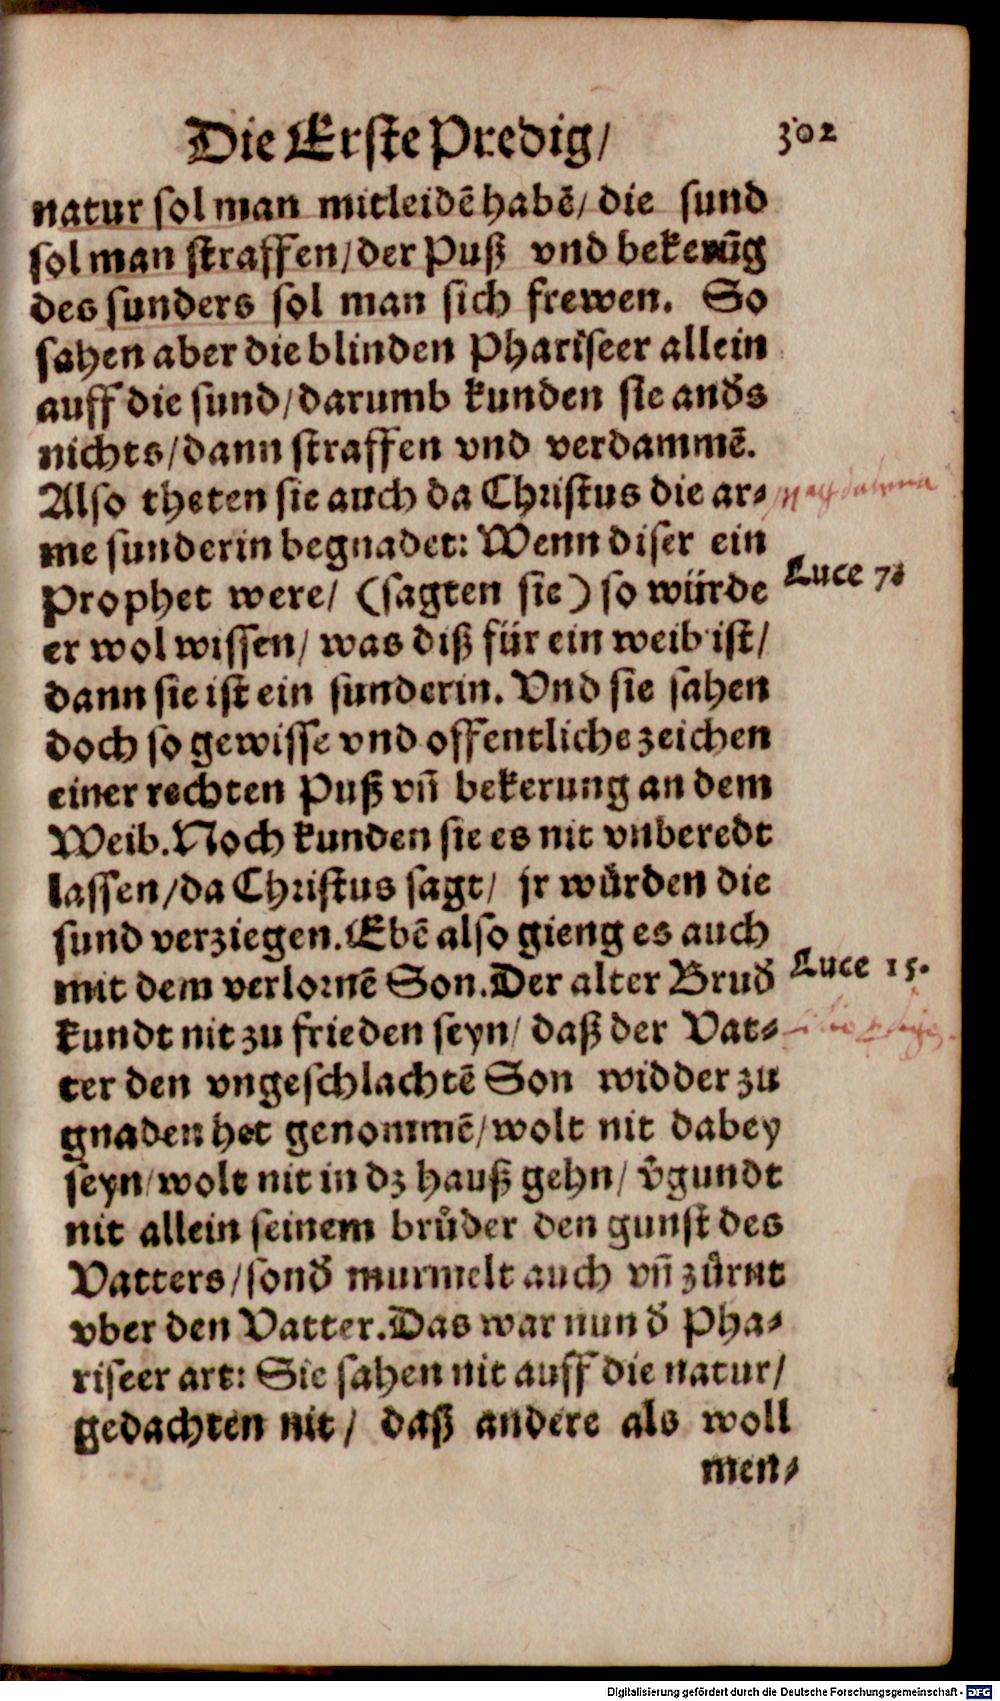 Die Erste Predig/ 302
natur sol man mitleidē habē/ die sund
sol man straffen/ der Puß vnd bekerūg
des sunders sol man sich frewen. So
sahen aber die blinden Phariseer allein
auff die sund/ darumb kunden sie and̄s
nichts/ dann straffen vnd verdammē.
Also theten sie auch da Christus die ar-
Magdalena
me sunderin begnadet: Wenn diser ein
Prophet were/ (sagten sie) so würde
Luce 7.
er wol wissen/ was diß für ein weib ist/
dann sie ist ein sunderin. Vnd sie sahen
doch so gewisse vnd offentliche zeichen
einer rechten Puß vn̄ bekerung an dem
Weib. Noch kunden sie es nit vnberedt
lassen/ da Christus sagt/ jr würden die
sund verziegen. Ebē also gieng es auch
mit dem verlornē Son. Der alter Brud̄
Luce 15.
kundt nit zu frieden seyn/ daß der Vat-
ter den vngeschlachtē Son widder zu
gnaden het genommē/ wolt nit dabey
seyn/ wolt nit in dz hauß gehn/ v̄gundt
nit allein seinem brůder den gunst des
Vatters/ sond̄ murmelt auch vn̄ zůrnt
vber den Vatter. Das war nun d̄ Pha-
riseer art: Sie sahen nit auff die natur/
gedachten nit/ daß andere als woll
men-
Digitalisierung gefördert durch die Deutsche Forschungsgemeinschaft - DFG